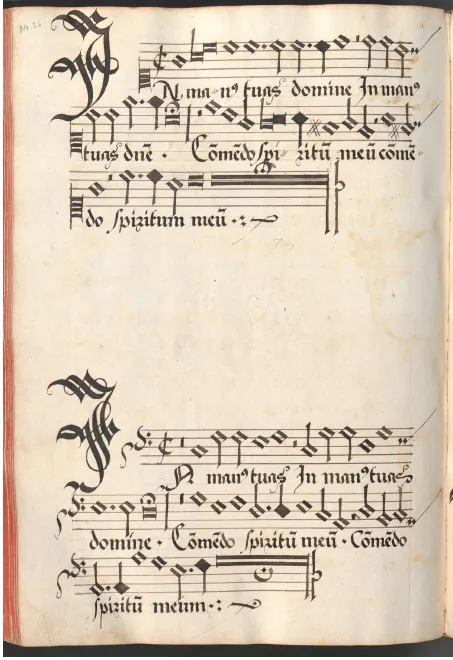 Nr. 26
IN man⁹ tuas domine In man⁹
tuas dñe · Cõmẽdo spi- ritũ meũ cõmẽ-
do spiritum meũ
IN man⁹ tuas In man⁹ tuas
domine · Cõmẽdo spiritũ meũ · Cõmẽdo
spiritũ meum